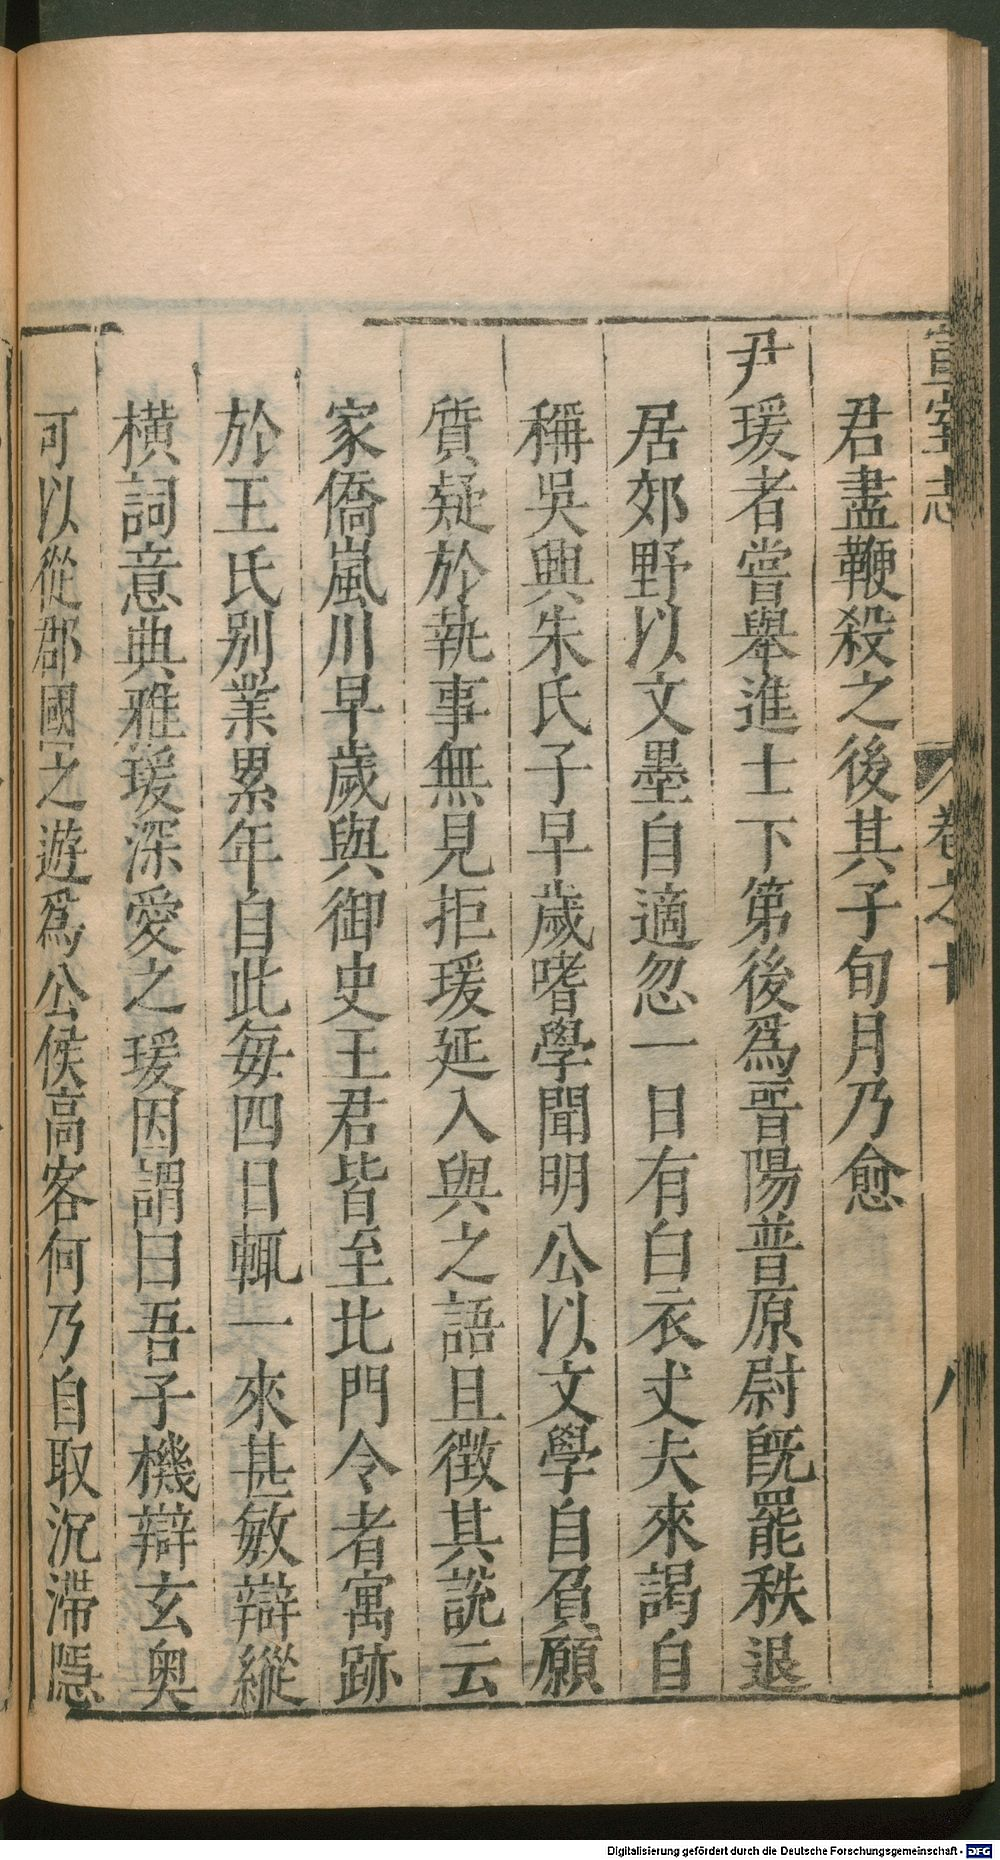 宣室志 卷之十 八
君盡鞭殺之後其子旬月乃愈
尹瑗者嘗舉進士下第後爲晉陽普原尉旣罷秩退
居郊野以文墨自適忽一日有白衣丈夫來謁自
稱吳興朱氏子早歲嗜學聞明公以文學自負願
質疑於執事無見拒瑗延入與之語且徵其說云
家僑嵐川早歲與御史王君皆至北門今者寓跡
於王氏別業累年自此每四日輒一來甚敏辯縱
橫詞意典雅瑗深愛之瑗因謂曰吾子機辯玄奥
可以從郡國之遊爲公侯高客何乃自取沉滯隱
Digitalisierung gefördert durch die Deutsche Forschungsgemeinschaft - DFG